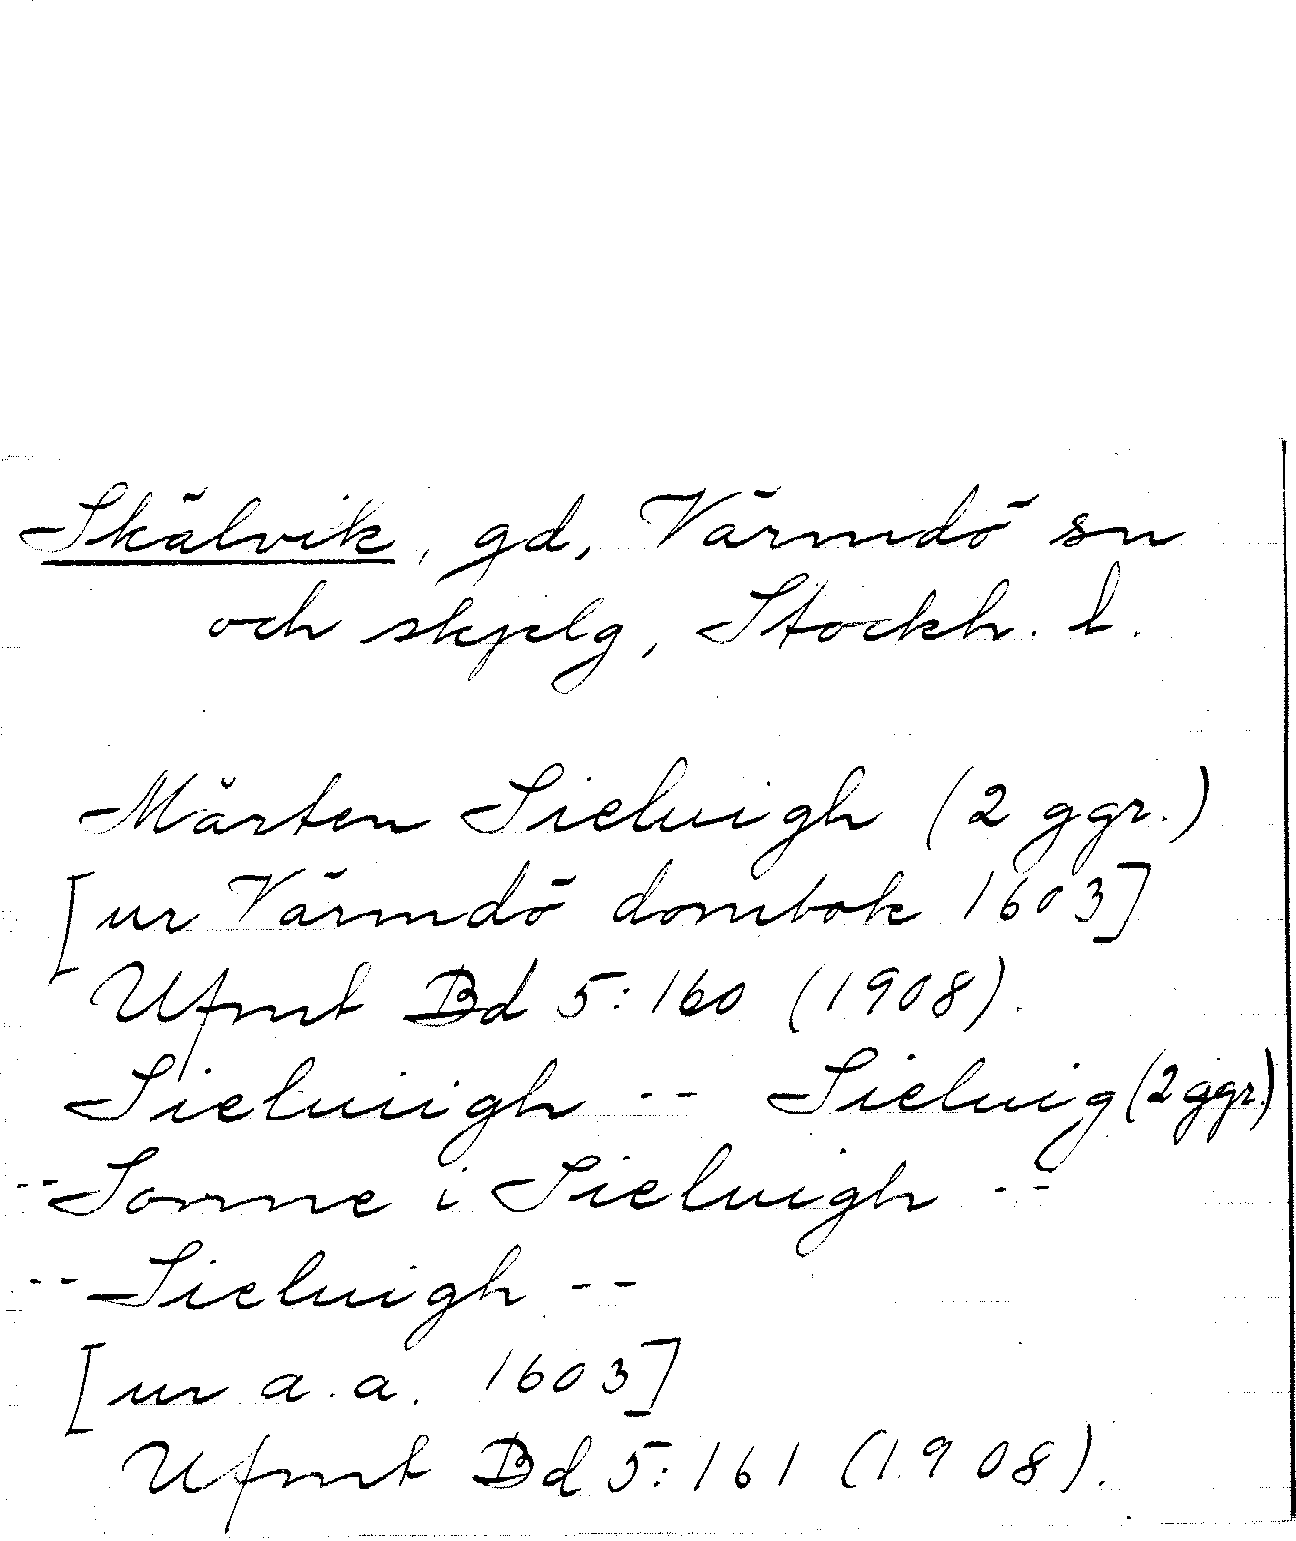 Skälvik, gd, Värmdö sn
och skjelg, Stockh. l.
Mårten Sieluigh (2 ggr.)
[ur Värmdö dombok 1603]
Ufmt Bd 5:160 (1908).
Sieluiigh -- Sieluig (2 ggr.)
-- Sonne i Sieluigh --
-- Sieluigh --
[ur a.a. 1603]
Ufmt Bd 5:161 (1908).